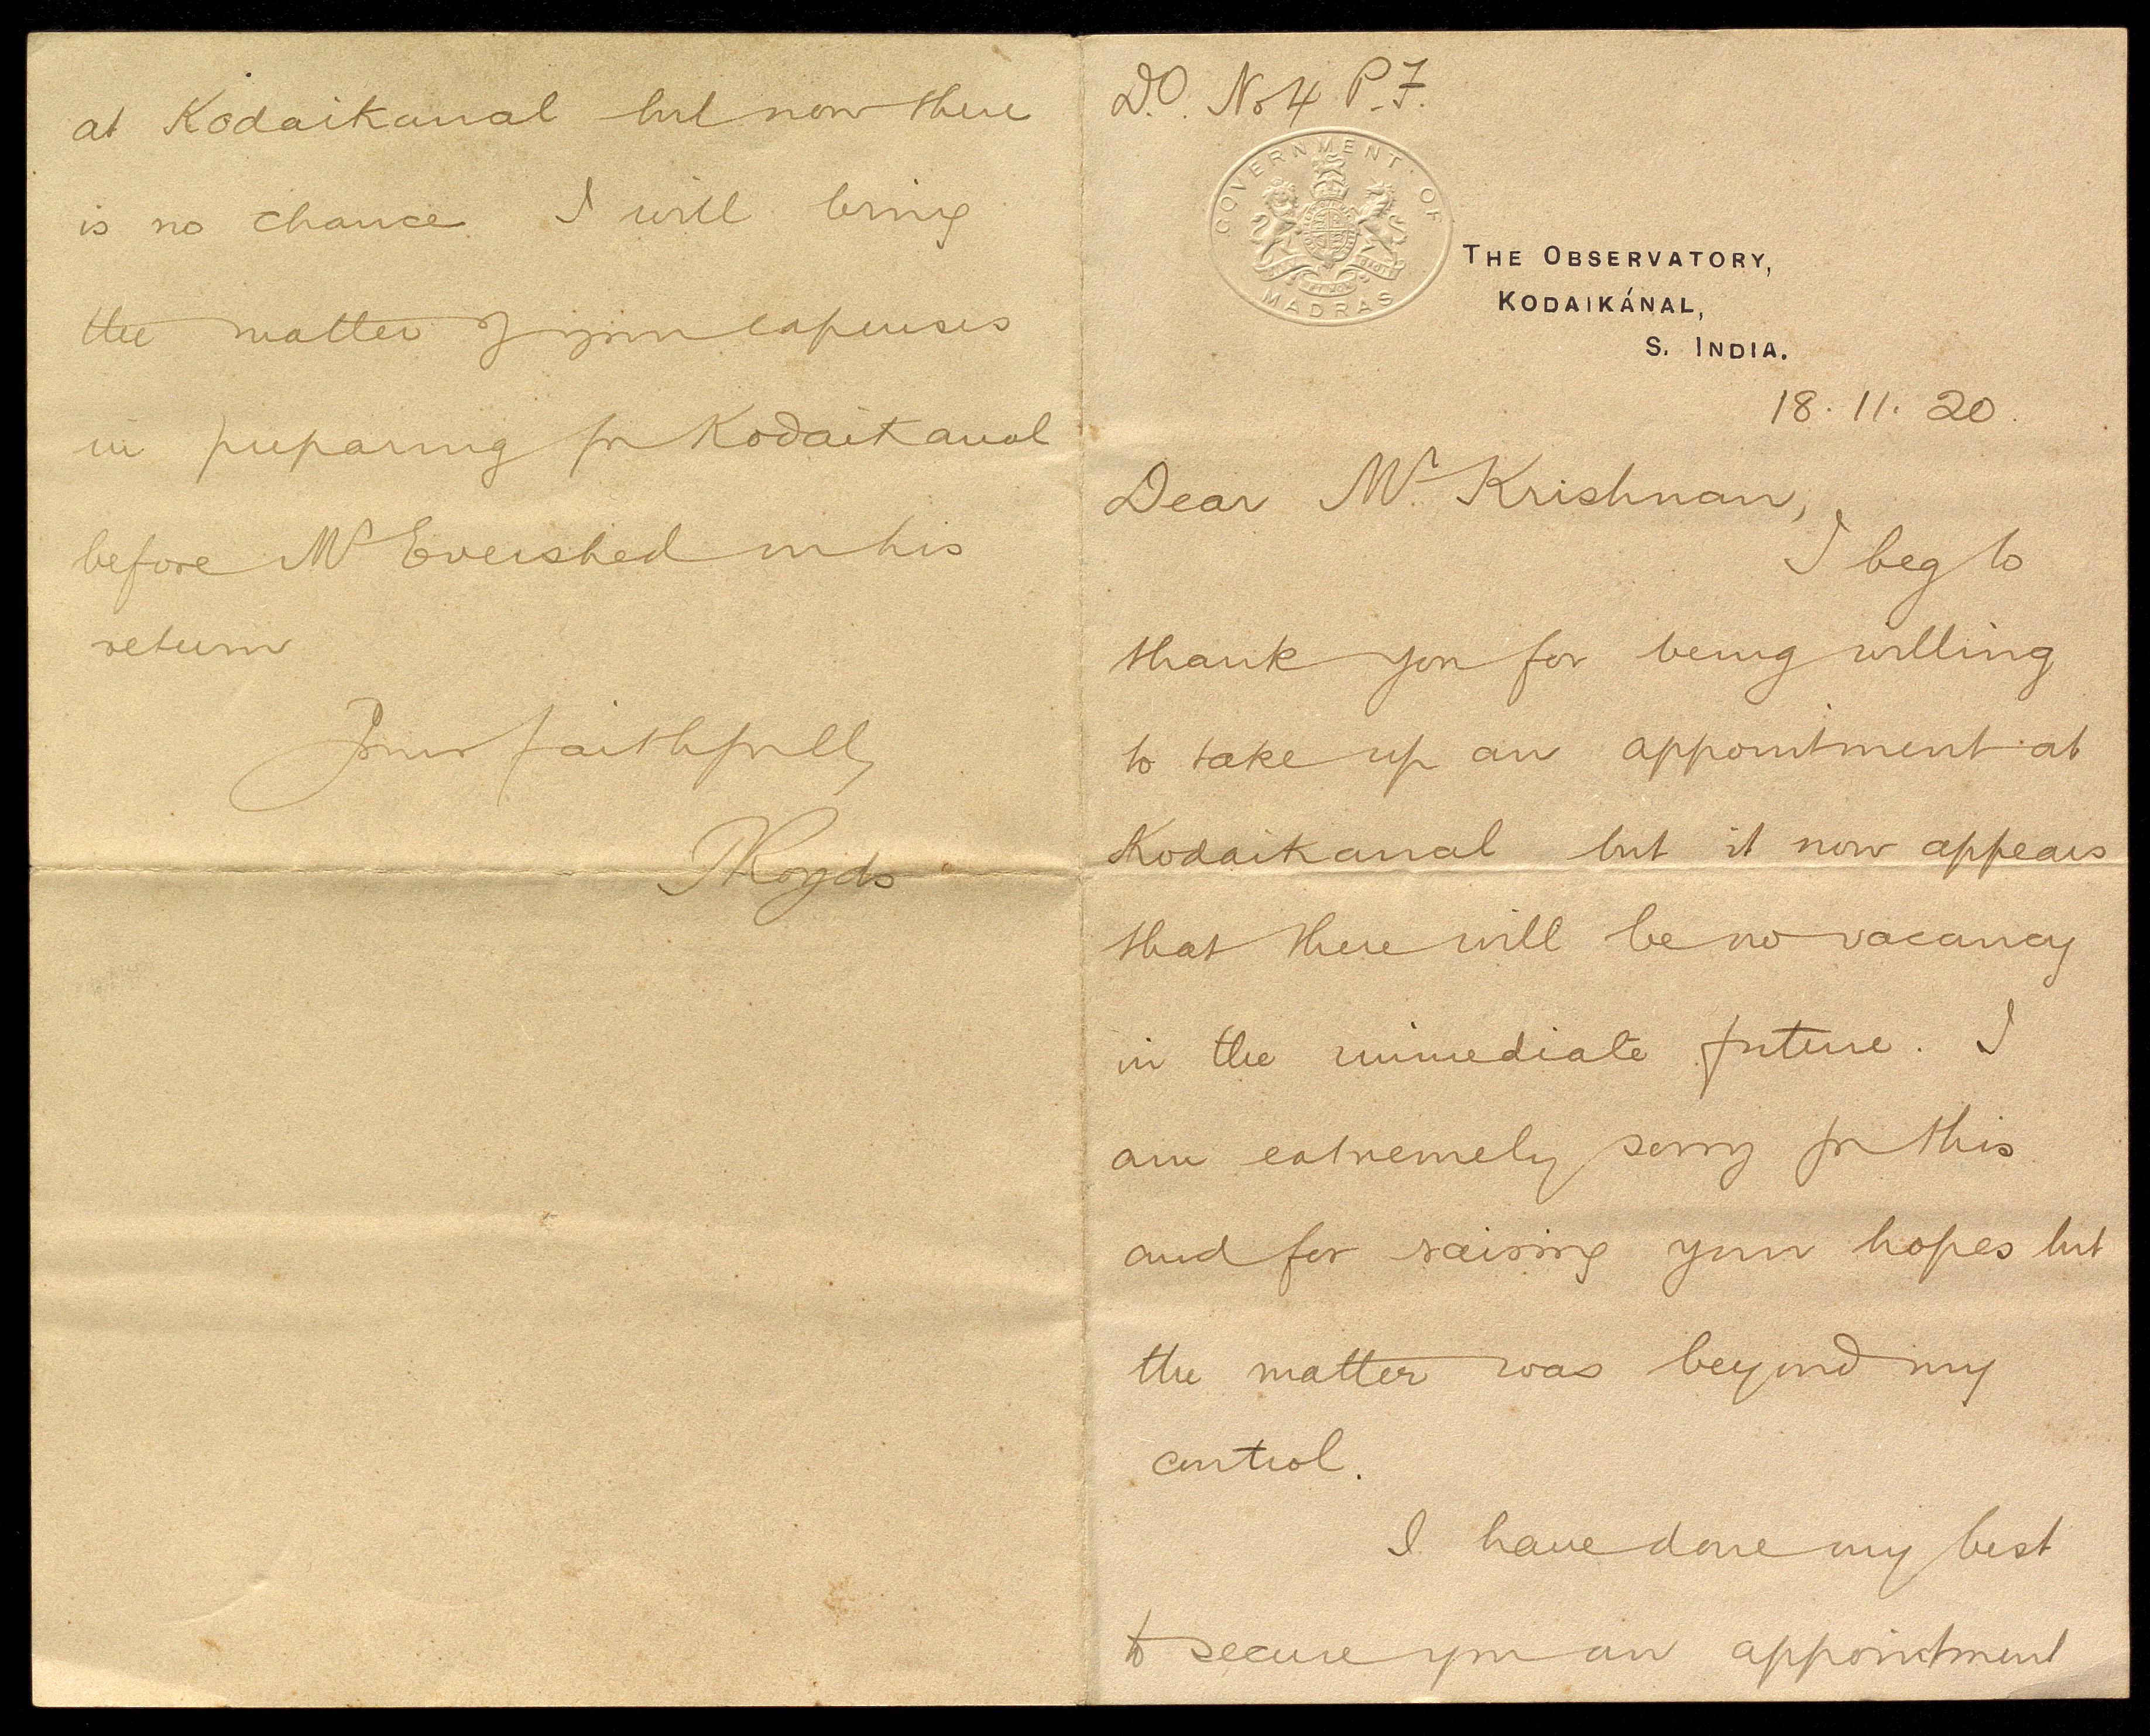 D.O. No 4 P.F.
GOVERNMENT OF
MADRAS
THE OBSERVATORY,
KODAIKÁNAL,
S. INDIA.
18.11.20.
Dear Mr Krishnan,
I beg to
thank you for being willing
to take up an appointment at
Kodaikanal but it now appears
that there will be no vacancy
in the immediate future. I
am extremely sorry for this
and for raising your hopes but
the matter was beyond my
control.
I have done my best
to secure you an appointment
at Kodaikanal but now there
is no chance. I will bring
the matter of your expenses
in preparing for Kodaikanal
before Mr Evershed on his
return
Yours faithfully
T Royds